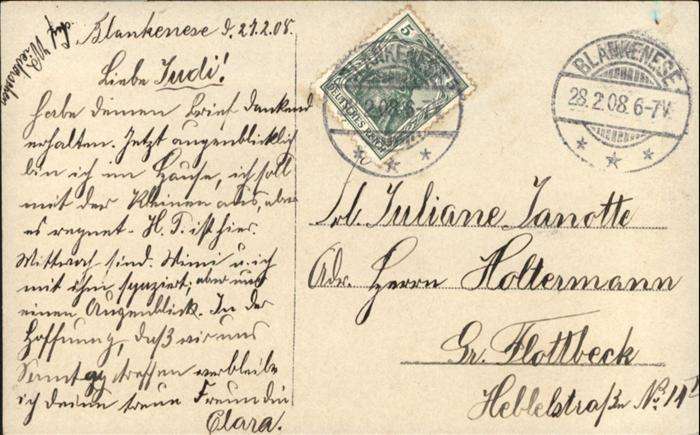 Auf Wiedersehn
Blankenese d. 27.2.08.
Liebe Judi!
Habe deinen Brief dankend
erhalten. Jetzt augenblicklich
bin ich im Hause, ich soll
mit der Kleinen aus, aber
es regnet. H. T. ist hier.
Mittwoch sind Mimi u. ich
mit ihm spaziert; aber nur
einen Augenblick. In der
Hoffnung, daß wir uns
Sonntag treffen verbleibe
ich deine treue Freundin
Clara.
5
DEUTSCHES REICH
BLANKENESE
2.08.6-
BLANKENESE
28.2.08.6-7V.
Frl. Juliane Janotte
Adr. Herrn Holtermann
Gr. Flottbeck
Hebbelstraße No. 11